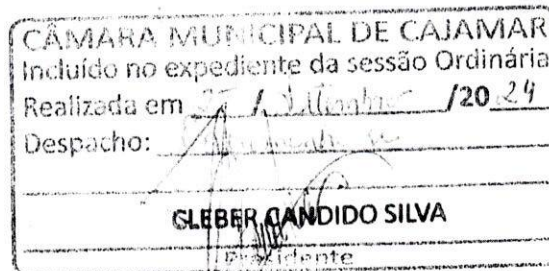 CÂMARA MUNICIPAL DE CAJAMAR
Incluído no expediente da sessão Ordinária
Realizada em / Setembro /20 24
Despacho:
CLEBER CANDIDO SILVA
Presidente